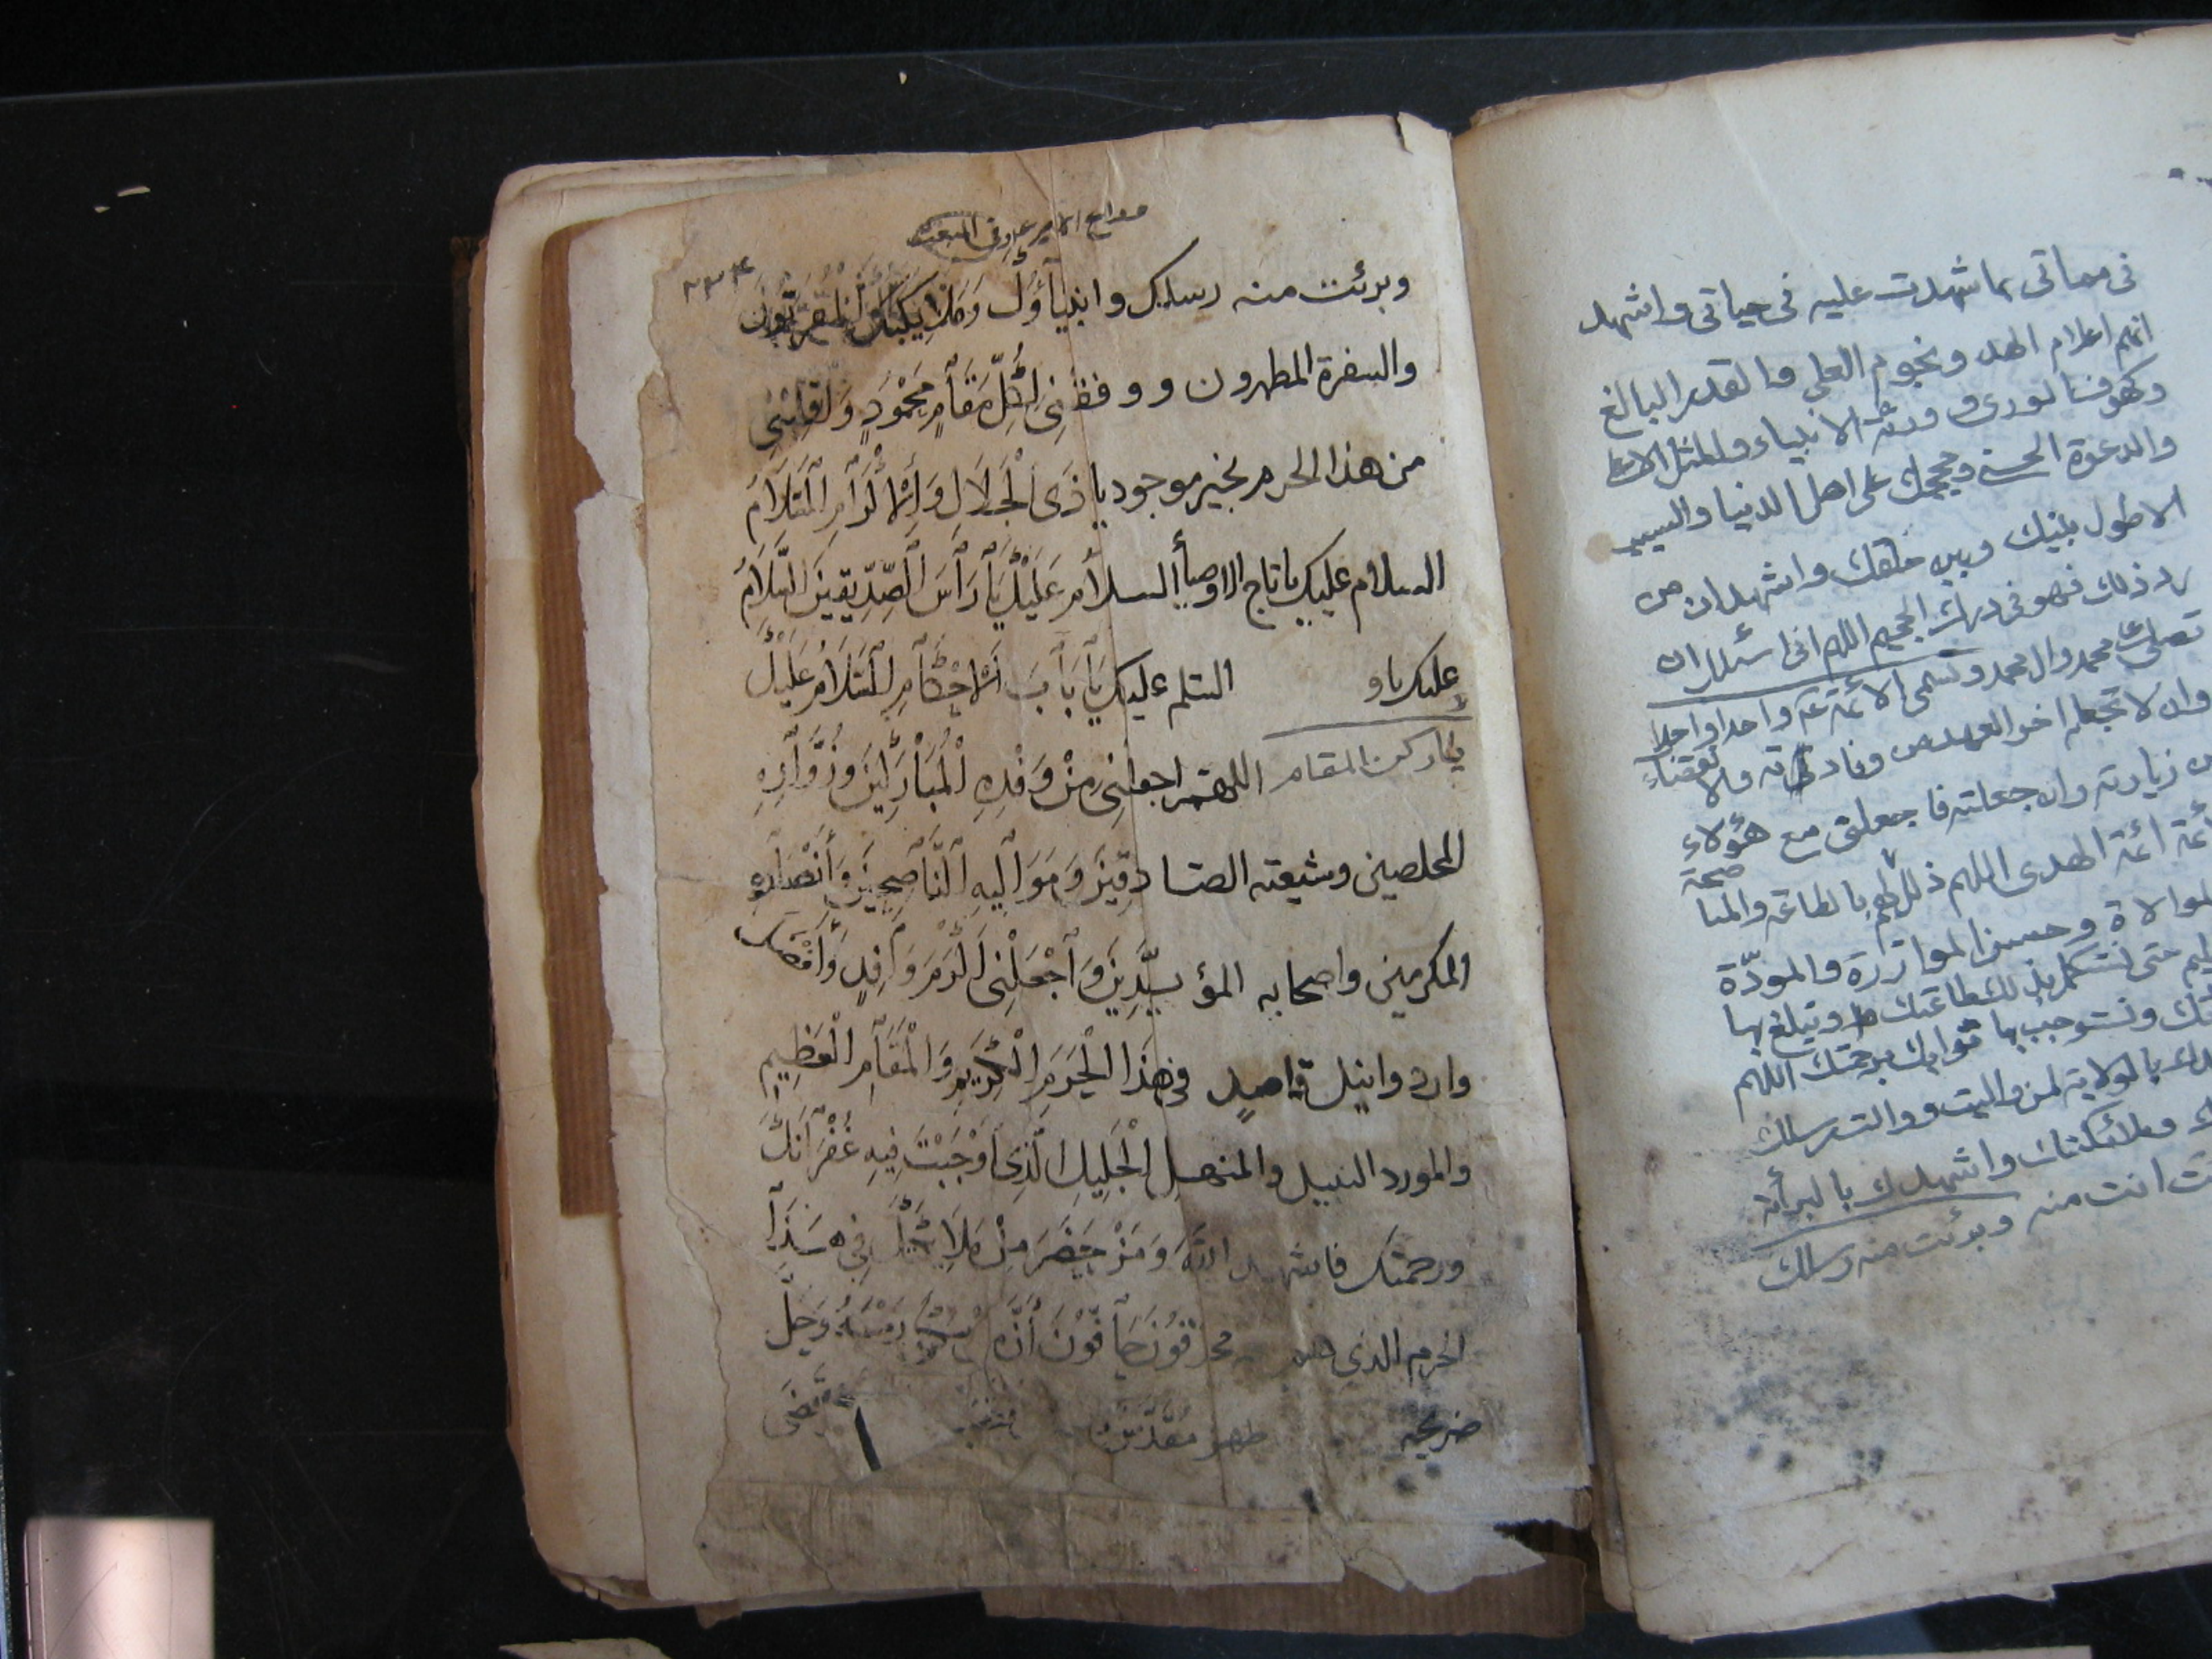 في مماتي بما شهدت عليه في حياتي واشهد
انهم اعلام الهدى ونجوم العلى والقدر البالغ
وكهوف الورى وورثة الانبياء والمثل الاعلى
والدعوة الحسنى وحججك على اهل الدنيا والسبب
الاطول بينك وبين خلقك واشهد ان من
رد ذلك فهو في درك الجحيم اللهم اني اسئلك ان
تصلي على محمد وال محمد وتسمى الأئمة واحدا واحدا
وان لا تجعله اخر العهد من وفادته ولا
زيارته وان جعلته فاجعلني مع هؤلاء
ائمة الهدى اللهم ذلل لهم بالطاعة والمنا صحة
الموالاة وحسن الموازرة والمودة
حتى نستكمل بذلك طاعتك ونبلغ بها
ونستوجب بها ثوابك برحمتك اللهم
بالولاية لمن واليت ووالت رسلك
وملائكتك واشهدك بالبرأة
انت منه وبرئت منه رسلك
معراج الامير في المبعث
وبرئت منه رسلك وانبيآؤك وملائكتك المقربون
والسفرة المطهرون ووفقني لكل مقام محمود واقلبني
من هذا الحرم بخير موجود يا ذى الجلال والاكرام السلام
السلام عليك يا تاج الاوصيأ السلام عليك يا رأس الصديقين السلام
عليك يا و السلم عليك يا باب الاحكام السلام عليك
يا ركن المقام اللهم اجعلني من وفده المباركين وزواره
المخلصين وشيعته الصادقين ومواليه الناصحين وأنصاره
المكرمين واصحابه المؤيدين واجعلني اكرم وافد وأفضل
وارد وانبل قاصد في هذا الحرم الكريم والمقام العظيم
والمورد النبيل والمنهل الجليل الذي اوجبت فيه غفرانك
ورحمتك فاشهد الله ومن حضر من ملائكته في هذا
الحرم الذي هم محدقون حافون أن
ضريحه طهر مقدس